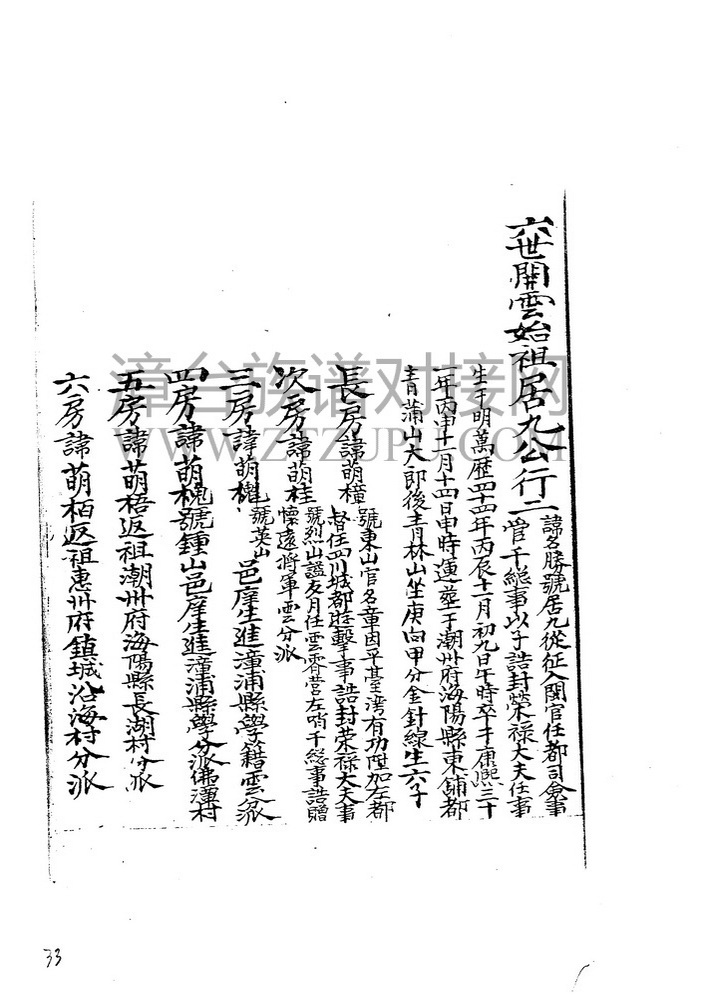 六世開雲始祖居九公行二
諱多勝號居九從征入閩官任都司僉事
管千総事以子誥封榮禄大夫任事
生于明萬歷四十四年丙辰十一月初九日午時卒于康熙三十
一年丙申十一月十四日申時運葬于潮州府海陽縣東舖都
青蒲山大郎後青林山坐庚向甲分金針線生六子
長房諱萌樟
號東山官名章因平臺灣有功陞加左都
督任四川城都遊擊事誥封荣禄大夫事
次房諱萌桂
號烈山諡友月任雲霄营左哨千総事誥贈
懷遠將軍雲分派
三房諱萌槐
號英山
邑庠生進漳浦縣學籍雲分派
四房諱萌槐號鍾山邑庠生進漳浦縣學分派佛潭村
五房諱萌梧返祖潮州府海陽縣長湖村分派
六房諱萌栢返祖惠州府鎮城沿海村分派
漳台族谱对接网
WWW.ZTZUPU.COM
33